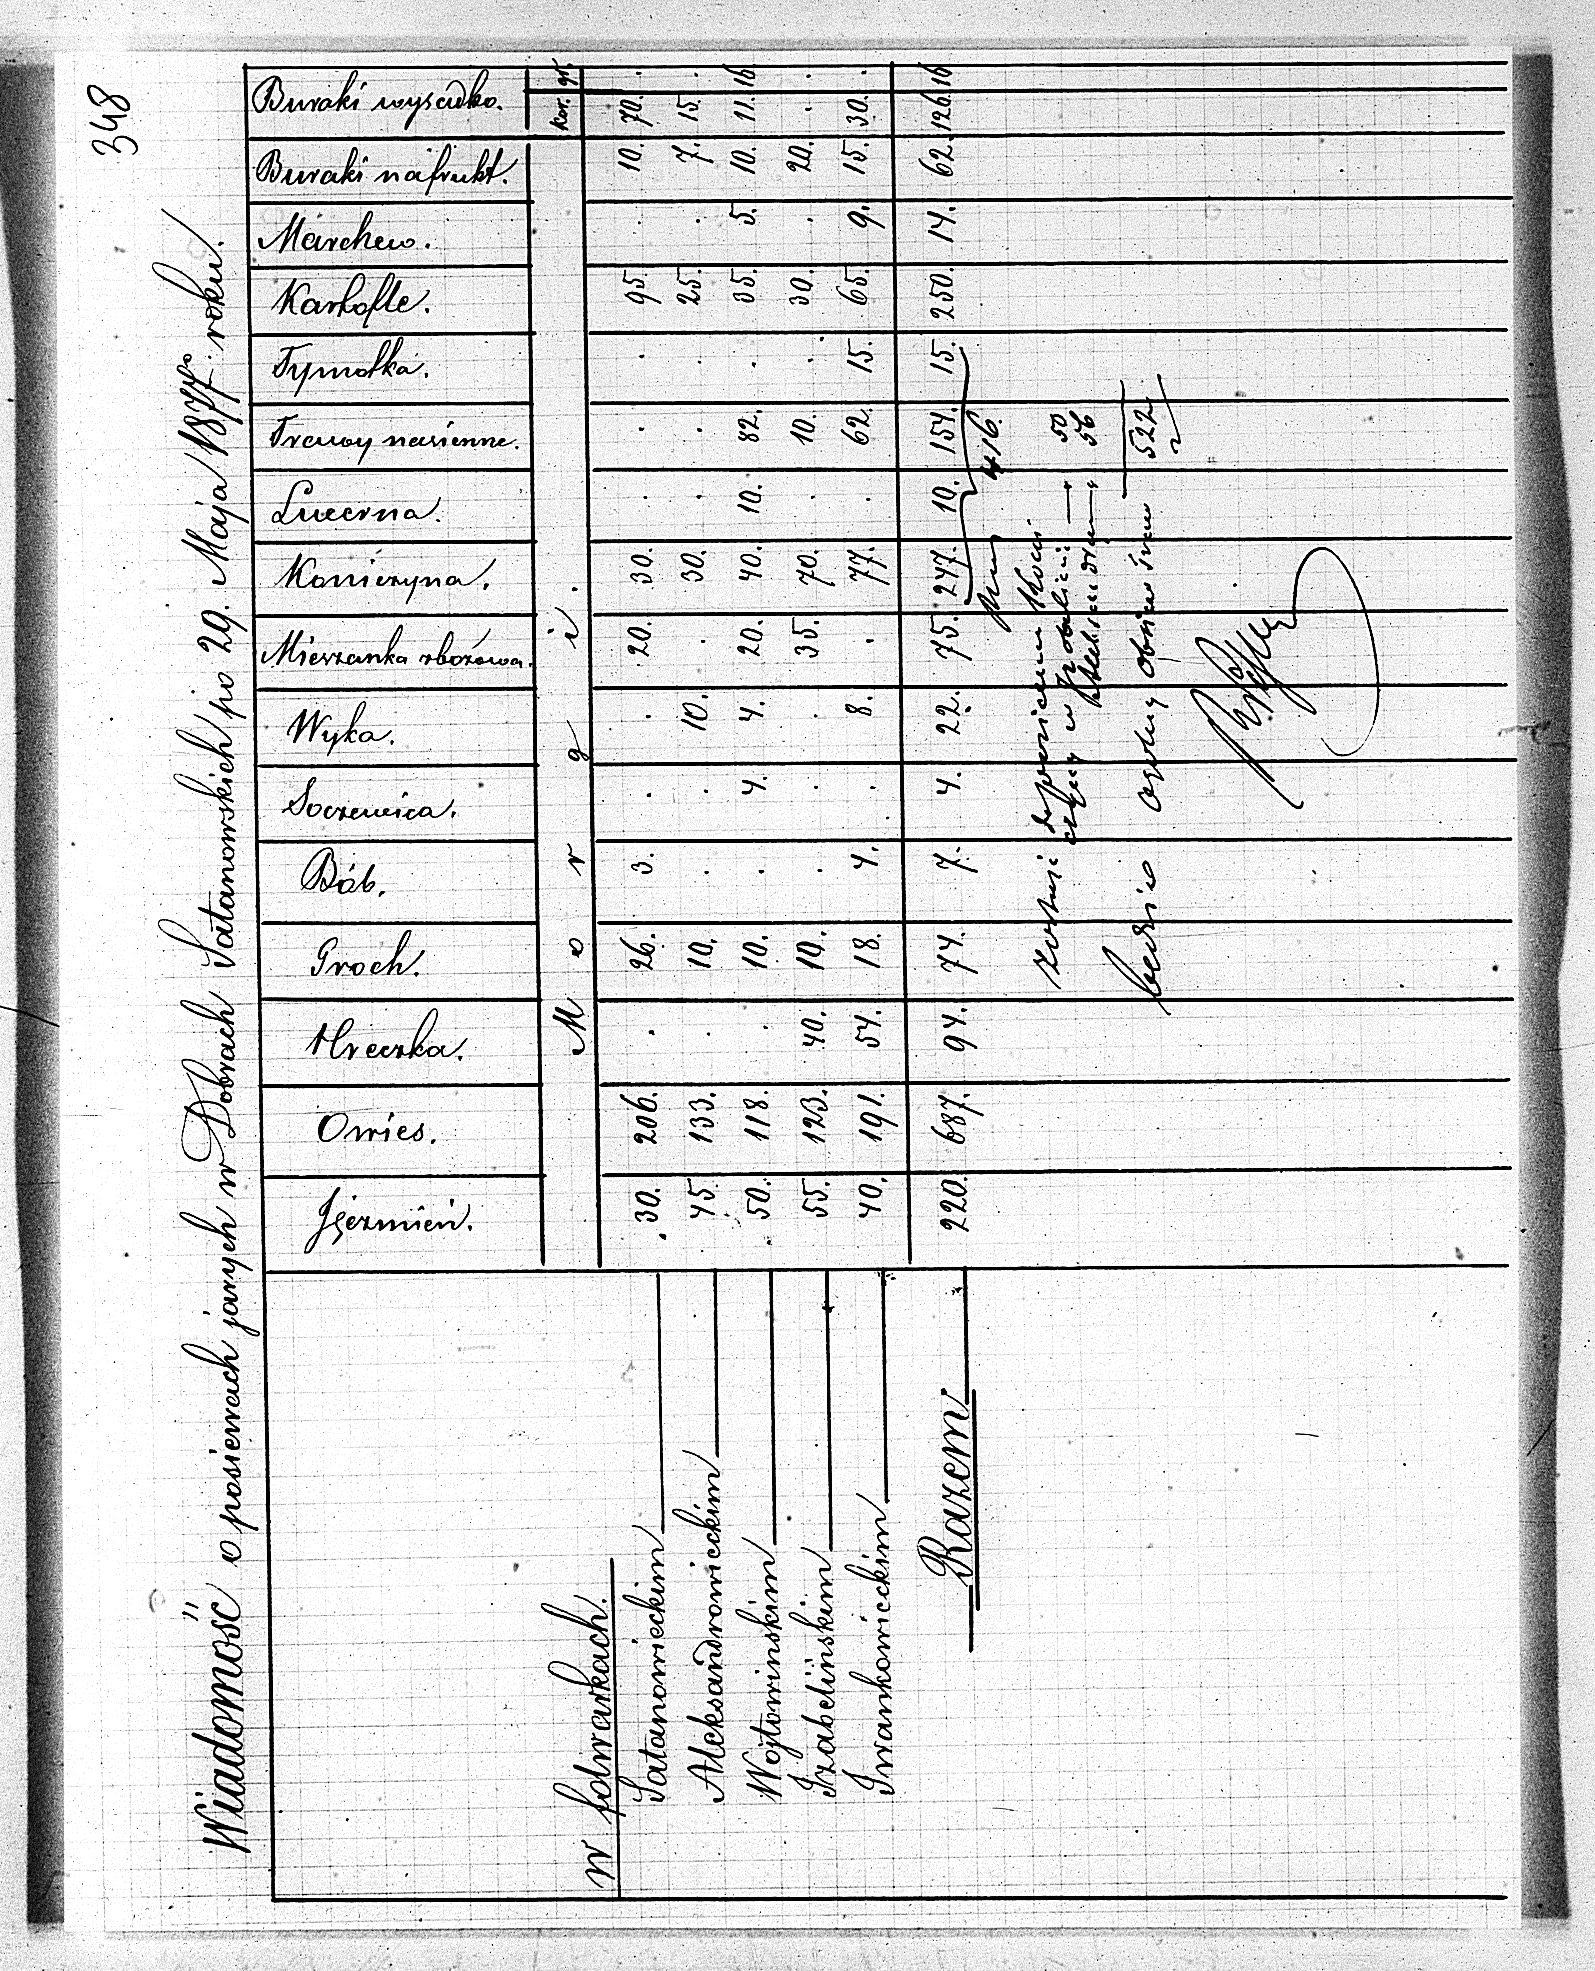 348
Wiadomość o posiewach jarych w Dobrach Satanowskich po 29. Maja 1877go roku.
Jęczmień. Owies. Hreczka. Groch. Bób. Soczewica. Wyka. Mieszanka zbożowa. Koniczyna. Lucerna. Trawy nasienne. Tymotka. Kartofle. Marchew. Buraki na frukt. Buraki wysadko.
M o r g i . Kor. gr.
w folwarkach.
Satanowieckim 30. 206. . 26. 3. . . 20. 30. . . . 95. . 10. 70. .
Aleksandrowieckim 45. 133. . 10. . . 10. . 30. . . . 25. . 7. 15. .
Wojtowińskim 50. 118. . 10. . 4. 4. 20. 40. 10. 82. . 35. 5. 10. 11. 16
Izabelińskim 55. 123. 40. 10. . . . 35. 70. . 10. . 30. . 20. . .
Iwankowieckim 40. 191. 54. 18. 4. . 8. . 77. . 62. 15. 65. 9. 15. 30. .
Razem 220. 687. 94. 74. 7. 4. 22. 75. 247. 10. 154. 15. 250. 14. 62. 126. 16
416.
w Izabelinie — 50
56
będzie ogólny obsiew traw 522